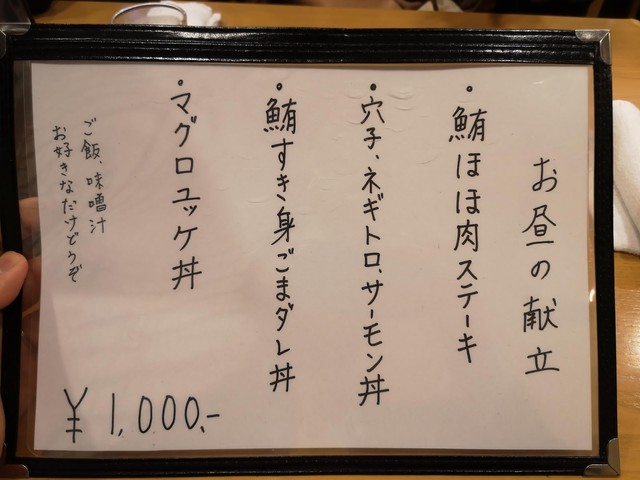 お昼の献立
・鮪ほほ肉ステーキ
・穴子、ネギトロ、サーモン丼
・鮪すき身ごまダレ丼
・マグロユッケ丼
ご飯、味噌汁
お好きなだけどうぞ
¥1,000.-